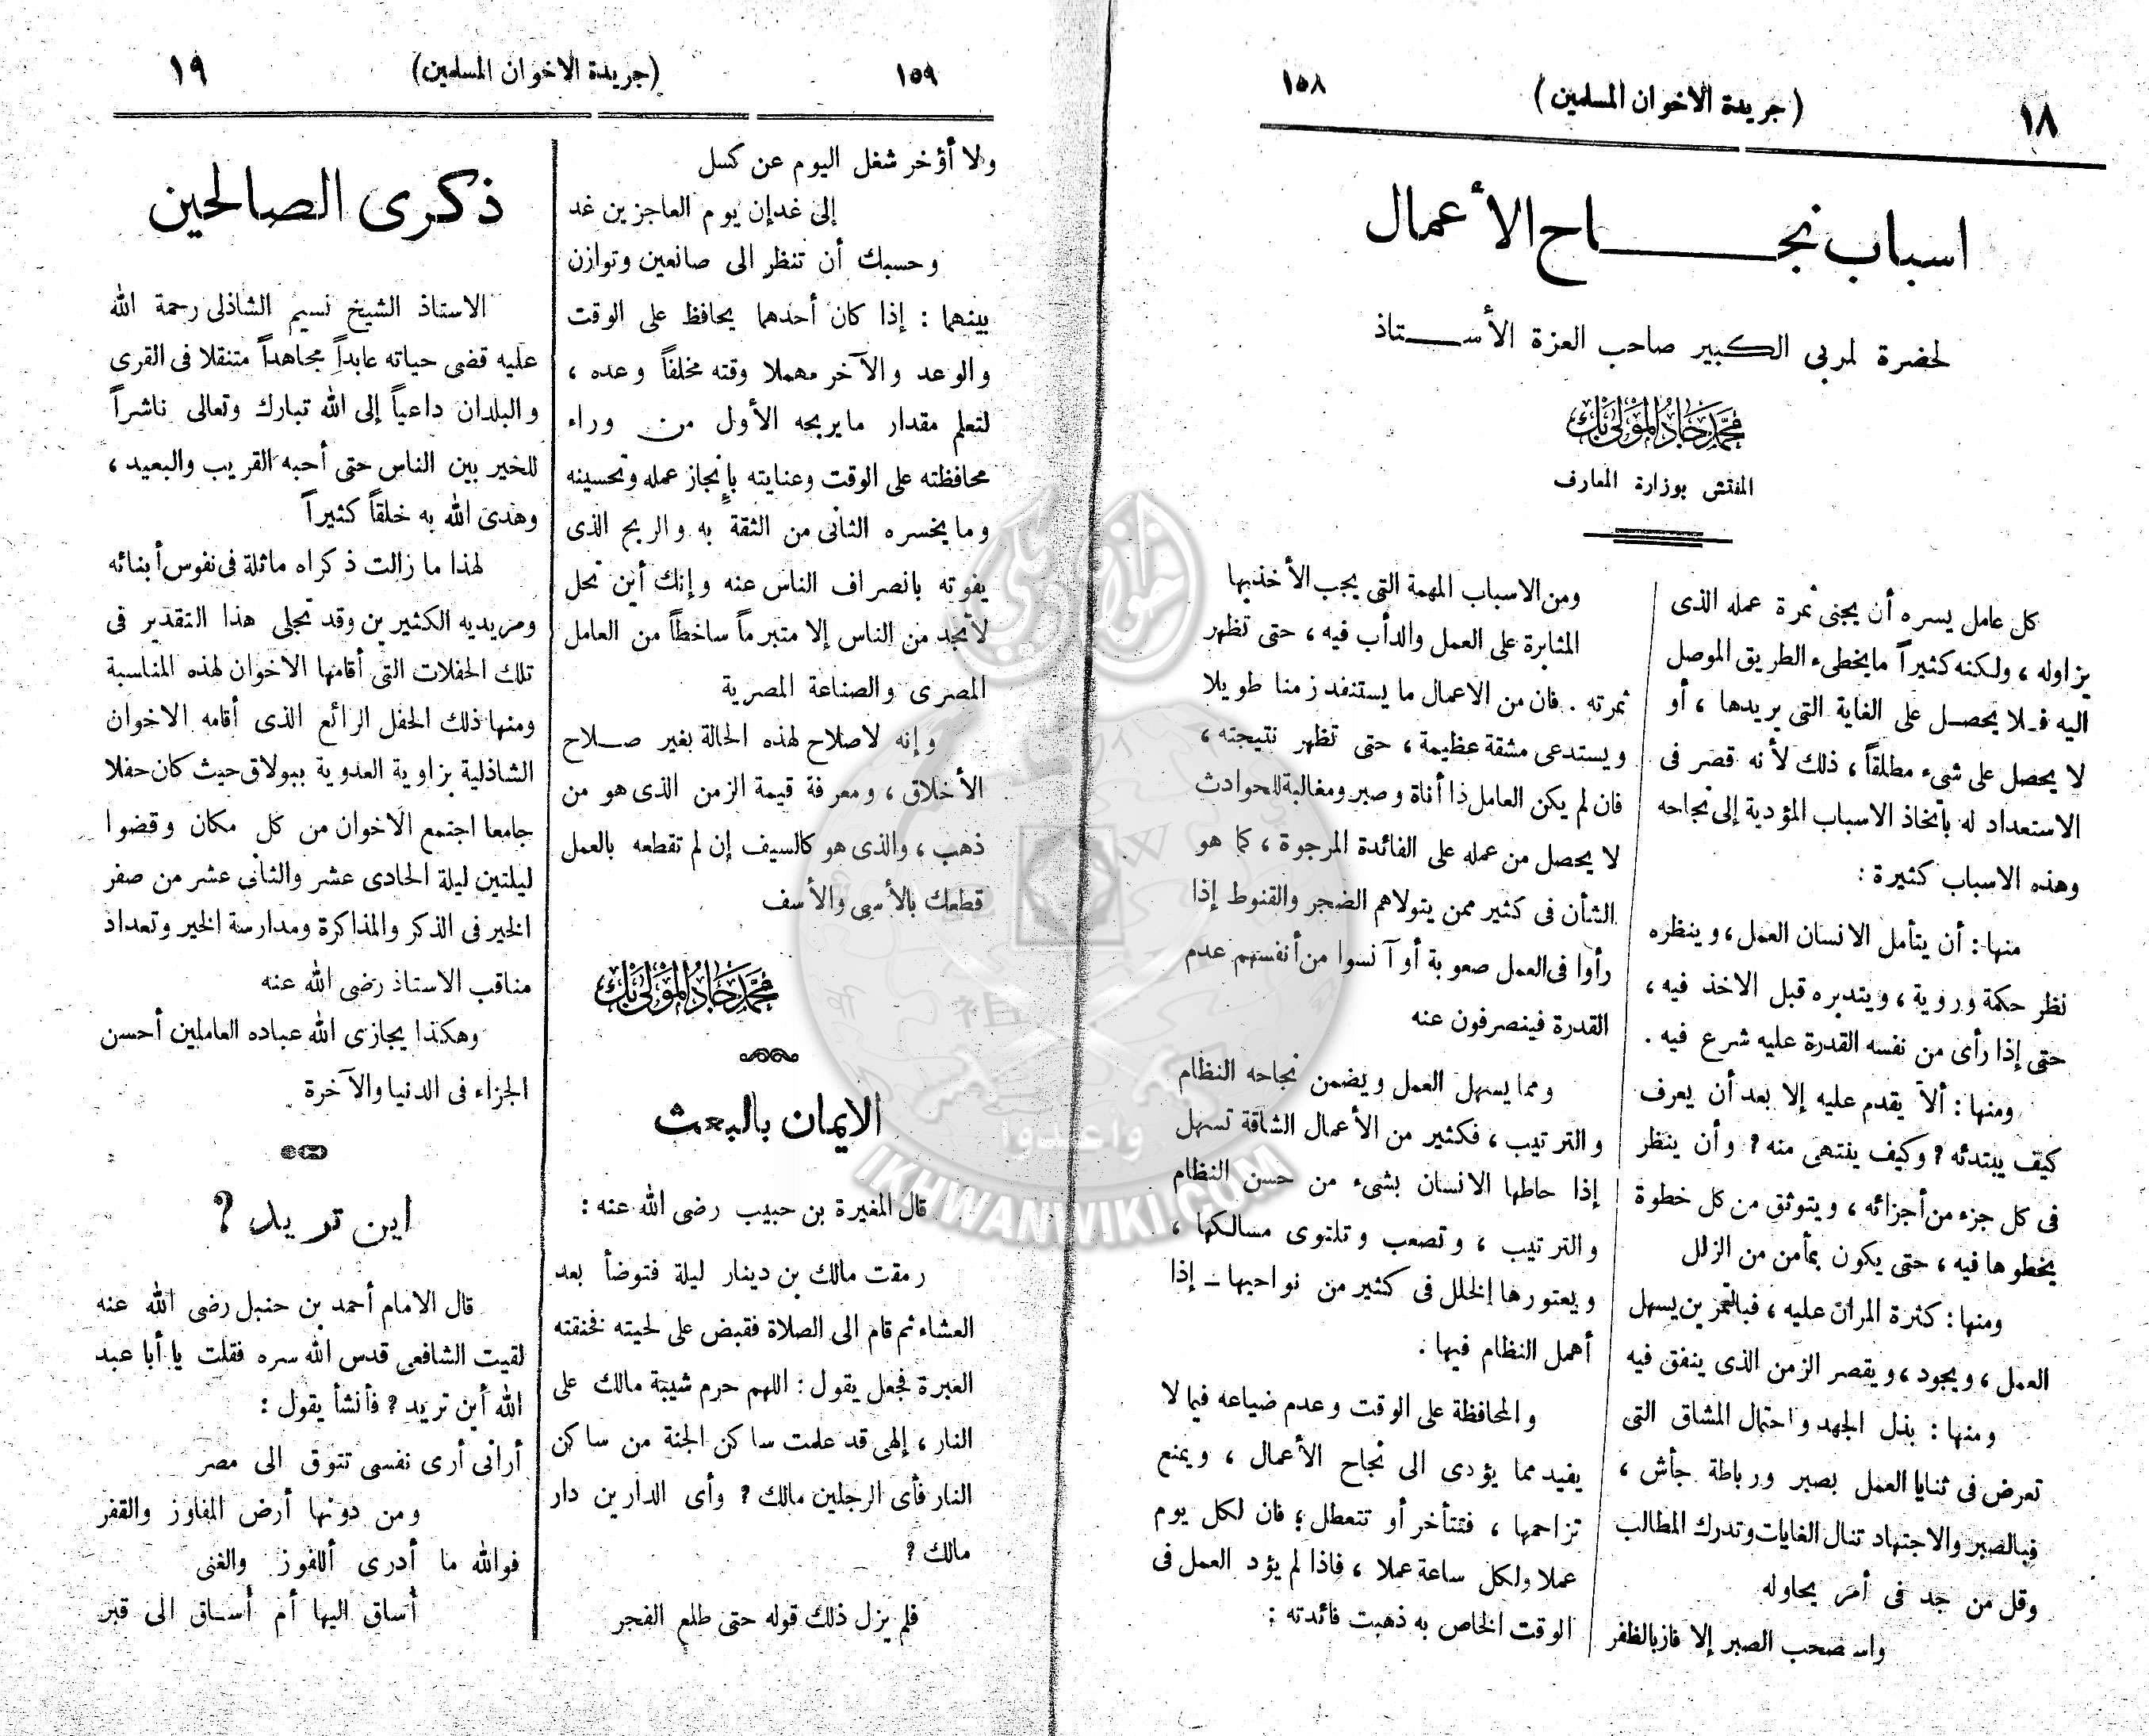 ١٨
(جريدة الاخوان المسلمين)
١٥٨
اسباب نجـــاح الأعمال
لحضرة لمربى الكبير صاحب العزة الأستاذ
محمد جاد المولى بك
المفتش بوزارة المعارف
كل عامل يسره أن يجنى ثمرة عمله الذى
يزاوله ، ولكنه كثيراً ما يخطىء الطريق الموصل
اليه فلا يحصل على الغاية التى يريدها ، أو
لا يحصل على شىء مطلقاً ، ذلك لأنه قصر فى
الاستعداد له باتخاذ الاسباب المؤدية إلى نجاحه
وهذه الاسباب كثيرة :
منها : أن يتأمل الانسان العمل ، وينظره
نظر حكمة وروية ، ويتدبره قبل الاخذ فيه ،
حتى إذا رأى من نفسه القدرة عليه شرع فيه .
ومنها : ألا يقدم عليه إلا بعد أن يعرف
كيف يبتدئه ؟ وكيف ينتهى منه ؟ وأن ينظر
فى كل جزء من أجزائه ، ويتوثق من كل خطوة
يخطوها فيه ، حتى يكون بمأمن من الزلل
ومنها : كثرة المران عليه ، فبالتمرين يسهل
العمل ، ويجود ، ويقصر الزمن الذى ينفق فيه
ومنها : بذل الجهد واحتمال المشاق التى
تعرض فى ثنايا العمل بصبر ورباطة جأش ،
فبالصبر والاجتهاد تنال الغايات وتدرك المطالب
وقل من جد فى أمر يحاوله
واستصحب الصبر إلا فاز بالظفر
ومن الاسباب المهمة التى يجب الأخذ بها
المثابرة على العمل والدأب فيه ، حتى تظهر
ثمرته . فان من الاعمال ما يستنفد زمنا طويلا
ويستدعى مشقة عظيمة ، حتى تظهر نتيجته ،
فان لم يكن العامل ذا أناة وصبر ومغالبة للحوادث
لا يحصل من عمله على الفائدة المرجوة ، كما هو
الشأن فى كثير ممن يتولاهم الضجر والقنوط إذا
رأوا فى العمل صعوبة أو آنسوا من أنفسهم عدم
القدرة فينصرفون عنه
ومما يسهل العمل ويضمن نجاحه النظام
والترتيب ، فكثير من الأعمال الشاقة تسهل
إذا حاطها الانسان بشىء من حسن النظام
والترتيب ، وتصعب وتلتوى مسالكها ،
ويعتورها الخلل فى كثير من نواحيها ــ إذا
أهمل النظام فيها .
والمحافظة على الوقت وعدم ضياعه فيما لا
يفيد مما يؤدى الى نجاح الأعمال ، ويمنع
تزاحمها ، فتتأخر أو تتعطل ؛ فان لكل يوم
عملا ولكل ساعة عملا ، فاذا لم يؤد العمل فى
الوقت الخاص به ذهبت فائدته :
١٥٩
(جريدة الاخوان المسلمين)
١٩
ولا أؤخر شغل اليوم عن كسل
إلى غد إن يوم العاجزين غد
وحسبك أن تنظر الى صانعين وتوازن
بينهما : إذا كان أحدهما يحافظ على الوقت
والوعد والآخر مهملا وقته مخلفاً وعده ،
لتعلم مقدار ما يربحه الأول من وراء
محافظته على الوقت وعنايته بإنجاز عمله وتحسينه
وما يخسره الثانى من الثقة به والربح الذى
يفوته بانصراف الناس عنه وإنك أين تحل
لا تجد من الناس إلا متبرماً ساخطاً من العامل
المصرى والصناعة المصرية
وإنه لاصلاح لهذه الحالة بغير صلاح
الأخلاق ، ومعرفة قيمة الزمن الذى هو من
ذهب ، والذى هو كالسيف إن لم تقطعه بالعمل
قطعك بالأسى والأسف
محمد جاد المولى بك
الايمان بالبعث
قال المغيرة بن حبيب رضى الله عنه :
رمقت مالك بن دينار ليلة فتوضأ بعد
العشاء ثم قام الى الصلاة فقبض على لحيته فخنقته
العبرة فجعل يقول : اللهم حرم شيبة مالك على
النار ، إلهى قد علمت ساكن الجنة من ساكن
النار فأى الرجلين مالك ؟ وأى الدارين دار
مالك ؟
فلم يزل ذلك قوله حتى طلع الفجر
ذكرى الصالحين
الاستاذ الشيخ نسيم الشاذلى رحمة الله
عليه قضى حياته عابداً مجاهداً متنقلا فى القرى
والبلدان داعياً إلى الله تبارك وتعالى ناشراً
للخير بين الناس حتى أحبه القريب والبعيد ،
وهدى الله به خلقاً كثيراً
لهذا ما زالت ذكراه ماثلة فى نفوس أبنائه
ومريديه الكثيرين وقد تجلى هذا التقدير فى
تلك الحفلات التى أقامها الاخوان لهذه المناسبة
ومنها ذلك الحفل الرائع الذى أقامه الاخوان
الشاذلية بزاوية العدوية ببولاق حيث كان حفلا
جامعا اجتمع الاخوان من كل مكان وقضوا
ليلتين ليلة الحادى عشر والثانى عشر من صفر
الخير فى الذكر والمذاكرة ومدارسة الخير وتعداد
مناقب الاستاذ رضى الله عنه
وهكذا يجازى الله عباده العاملين أحسن
الجزاء فى الدنيا والآخرة
اين تريد ؟
قال الامام أحمد بن حنبل رضى الله عنه
لقيت الشافعى قدس الله سره فقلت يا أبا عبد
الله أين تريد ؟ فأنشأ يقول :
أرانى أرى نفسى تتوق الى مصر
ومن دونها أرض المفاوز والقفر
فوالله ما أدرى أللفوز والغنى
أساق اليها أم أساق الى قبر
إخوان ويكي
واعدوا
IKHWANWIKI.COM